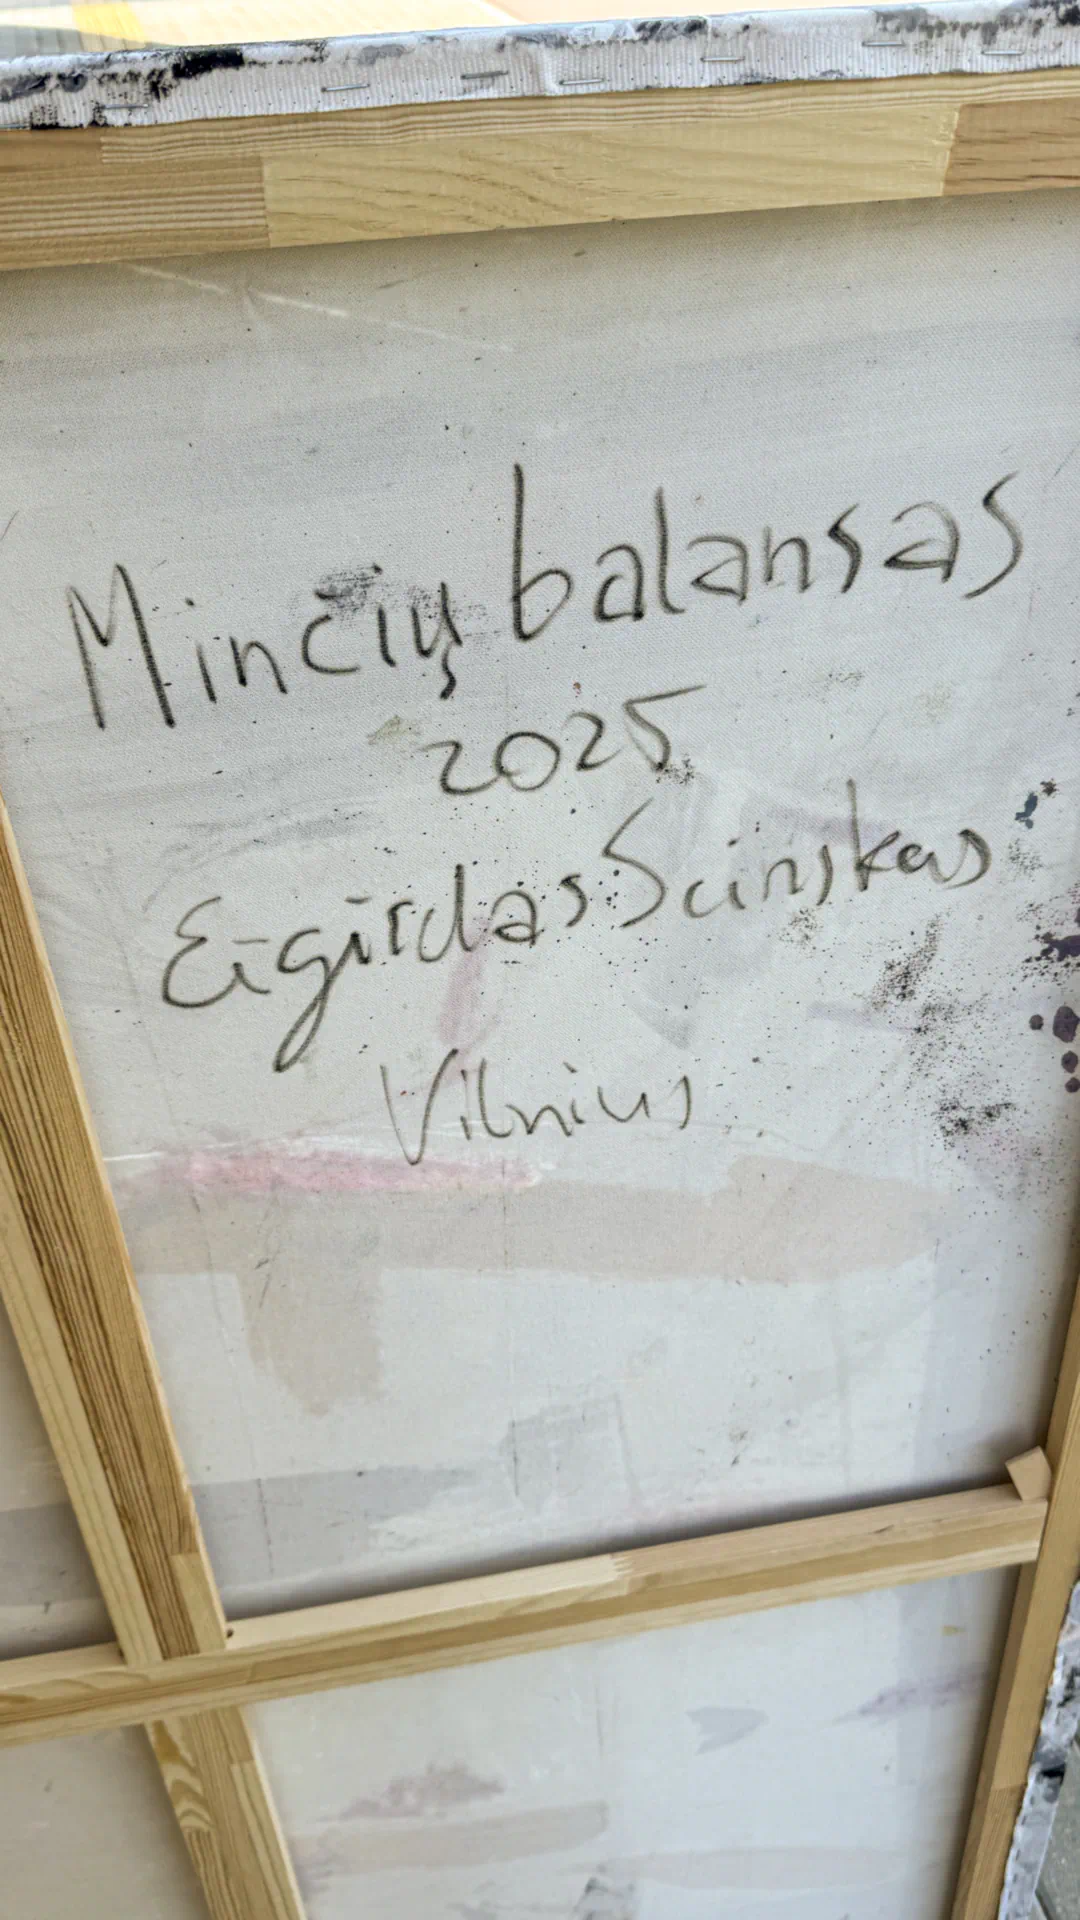 Minčių balansas
2025
Eigirdas Scinskas
Vilnius